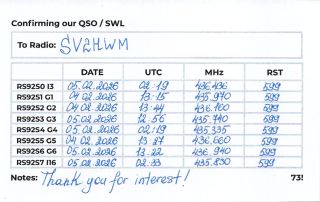 Confirming our QSO / SWL
To Radio: SV2HWM
DATE UTC MHz RST
RS92S0 I3 05.02.2026 02:19 436.436 599
RS92S1 G1 04.02.2026 13:15 435.970 599
RS92S2 G2 04.02.2026 13:44 436.160 599
RS92S3 G3 05.02.2026 12:56 435.740 599
RS92S4 G4 05.02.2026 02:19 435.335 599
RS92S5 G5 04.02.2026 13:27 436.660 599
RS92S6 G6 05.02.2026 13:22 436.940 599
RS92S7 I16 05.02.2026 02:33 435.830 599
Notes: Thank you for interest! 73!